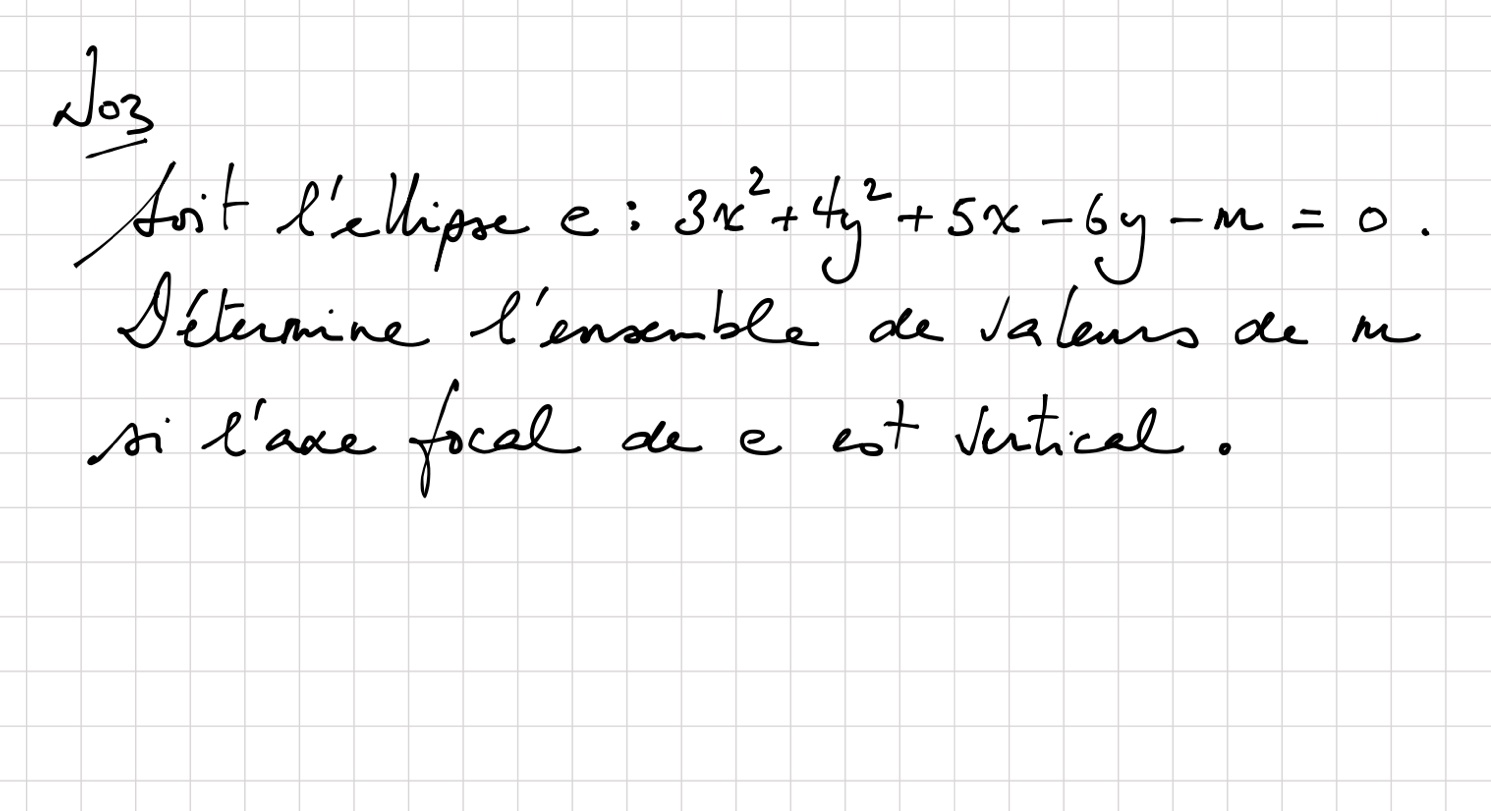 No3
Soit l'ellipse e : 3x² + 4y² + 5x - 6y - m = 0 .
Détermine l'ensemble de valeurs de m
si l'axe focal de e est vertical .